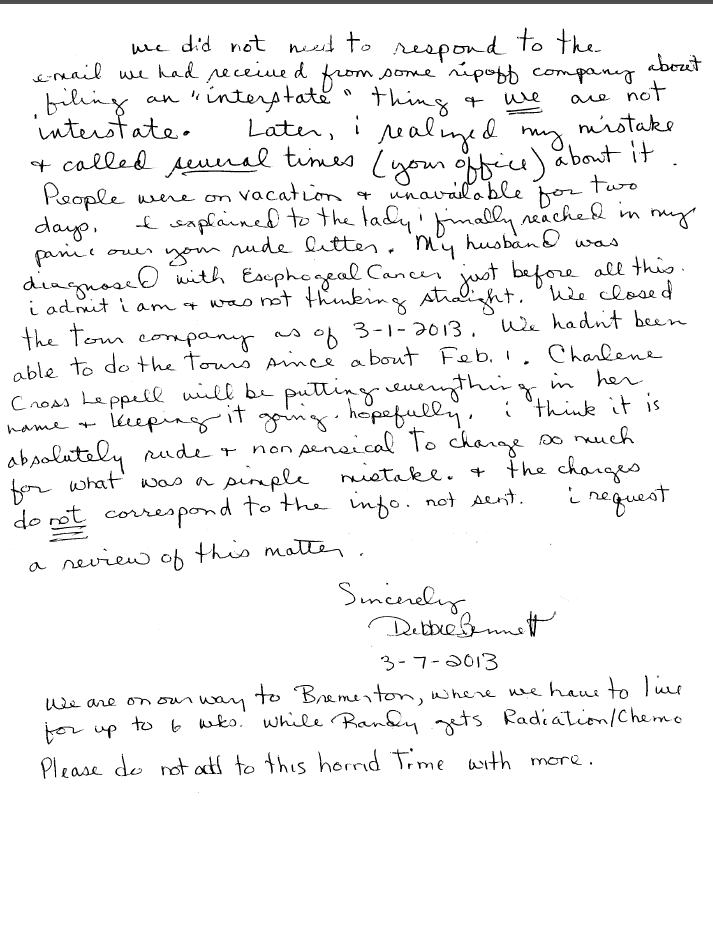 we did not need to respond to the
e-mail we had received from some ripoff company about
filing an "interstate" thing & we are not
interstate. Later, i realized my mistake
& called several times (your office) about it.
People were on vacation & unavailable for two
days. I explained to the lady i finally reached in my
panic over your rude letter. My husband was
diagnosed with Esophogeal Cancer just before all this.
i admit i am & was not thinking straight. We closed
the tour company as of 3-1-2013. We hadn't been
able to do the tours since about Feb. 1. Charlene
Cross Leppell will be putting everything in her
name & keeping it going, hopefully. i think it is
absolutely rude & nonsensical to charge so much
for what was a simple mistake. & the charges
do not correspond to the info. not sent. i request
a review of this matter.
Sincerely
Debbie Bennett
3-7-2013
We are on our way to Bremerton, where we have to live
for up to 6 wks. while Randy gets Radiation/Chemo
Please do not add to this horrid Time with more.